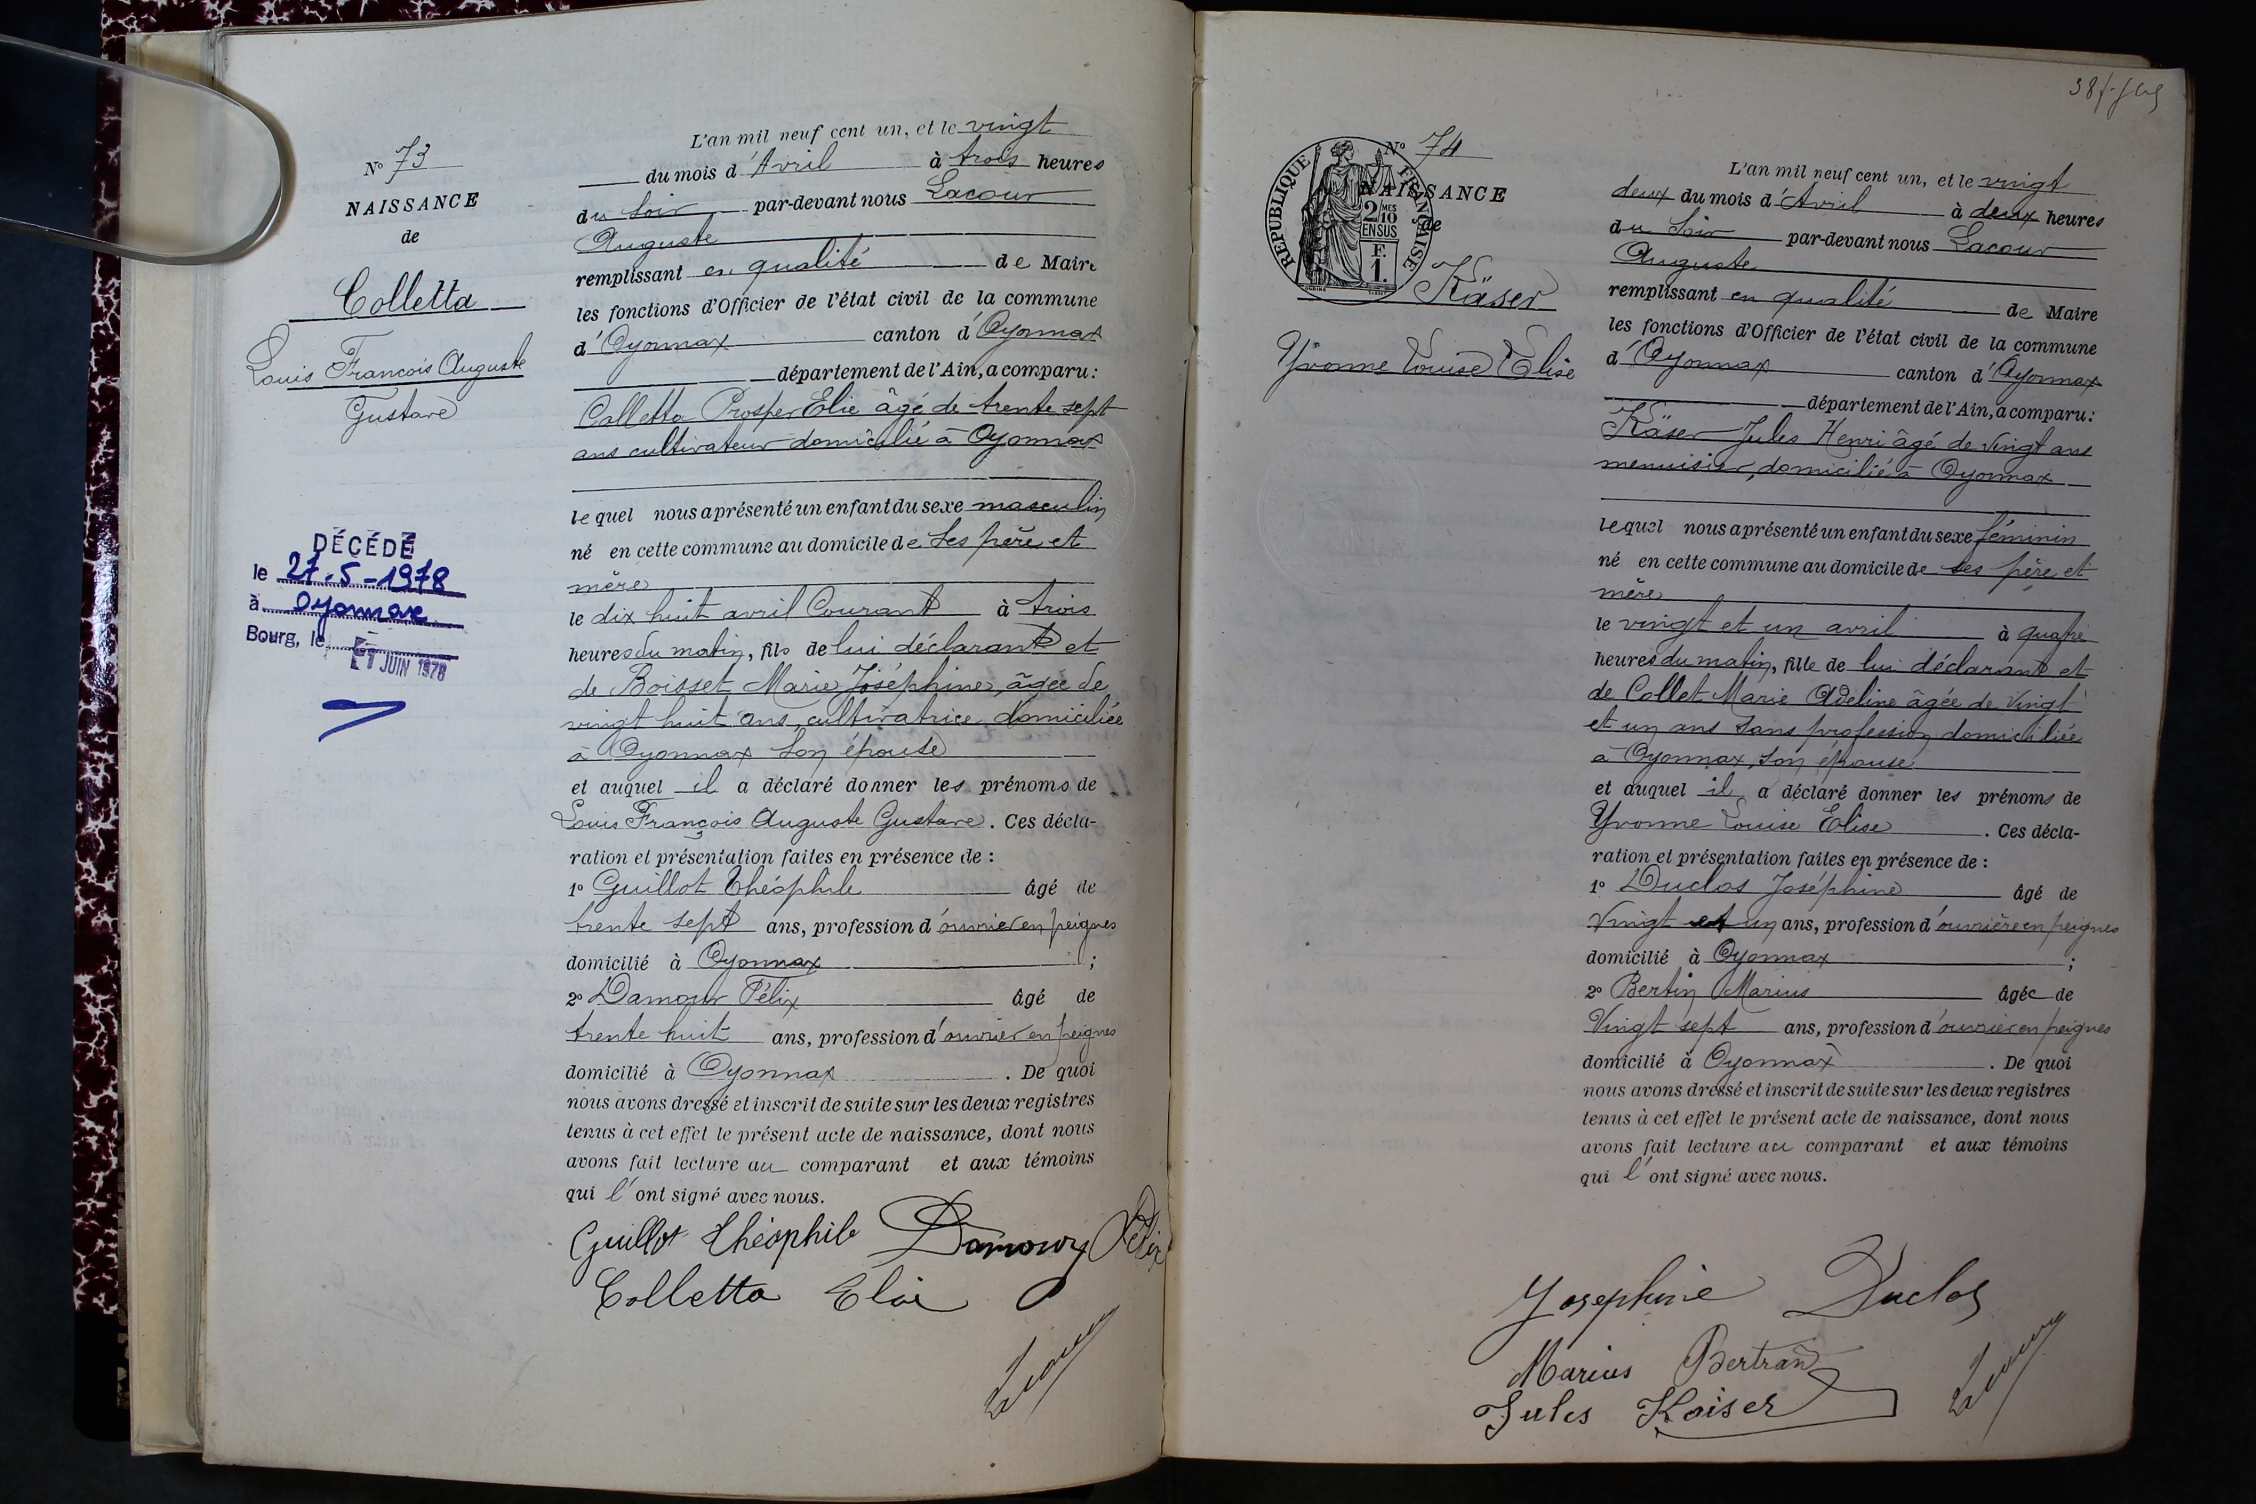 Nº 73
NAISSANCE
de
Colletta
Louis François Auguste
Gustave
DÉCÉDÉ
le 27-5-1978
à Oyonnax
Bourg, le
1 JUIN 1978
L'an mil neuf cent un, et le vingt
du mois d'Avril à trois heures
du Soir par-devant nous Lacour
Auguste
remplissant en qualité de Maire
les fonctions d'Officier de l'état civil de la commune
d'Oyonnax canton d'Oyonnax
département de l'Ain, a comparu :
Colletta Prosper Elie âgé de trente sept
ans cultivateur domicilié à Oyonnax
lequel nous a présenté un enfant du sexe masculin
né en cette commune au domicile de ses père et
mère
le dix huit avril Courant à trois
heures du matin, fils de lui déclarant et
de Boisset Marie Joséphine, âgée de
vingt huit ans, cultivatrice domiciliée
à Oyonnax son épouse
et auquel il a déclaré donner les prénoms de
Louis François Auguste Gustave. Ces décla-
ration et présentation faites en présence de :
1º Guillot Théophile âgé de
trente sept ans, profession d'ouvrier en peignes
domicilié à Oyonnax ;
2º Damour Félix âgé de
trente huit ans, profession d'ouvrier en peignes
domicilié à Oyonnax. De quoi
nous avons dressé et inscrit de suite sur les deux registres
tenus à cet effet le présent acte de naissance, dont nous
avons fait lecture au comparant et aux témoins
qui l'ont signé avec nous.
Guillot Théophile Damour Félix
Colletta Elie
Lacour
Nº 74
NAISSANCE
de
RÉPUBLIQUE FRANÇAISE
2/10 MES
EN SUS
F.
1.
Käser
Yvonne Louise Elise
L'an mil neuf cent un, et le vingt
deux du mois d'Avril à deux heures
du Soir par-devant nous Lacour
Auguste
remplissant en qualité de Maire
les fonctions d'Officier de l'état civil de la commune
d'Oyonnax canton d'Oyonnax
département de l'Ain, a comparu :
Käser Jules Henri âgé de vingt ans
menuisier, domicilié à Oyonnax
lequel nous a présenté un enfant du sexe féminin
né en cette commune au domicile de ses père et
mère
le vingt et un avril à quatre
heures du matin, fille de lui déclarant et
de Collet Marie Adeline âgée de Vingt
et un ans sans profession domiciliée
à Oyonnax, son épouse
et auquel il a déclaré donner les prénoms de
Yvonne Louise Elise. Ces décla-
ration et présentation faites en présence de :
1º Duclos Joséphine âgé de
Vingt et un ans, profession d'ouvrière en peignes
domicilié à Oyonnax ;
2º Bertin Marius âgée de
Vingt sept ans, profession d'ouvrier en peignes
domicilié à Oyonnax. De quoi
nous avons dressé et inscrit de suite sur les deux registres
tenus à cet effet le présent acte de naissance, dont nous
avons fait lecture au comparant et aux témoins
qui l'ont signé avec nous.
Josephine Duclos
Marius Bertran
Jules Kaiser
Lacour